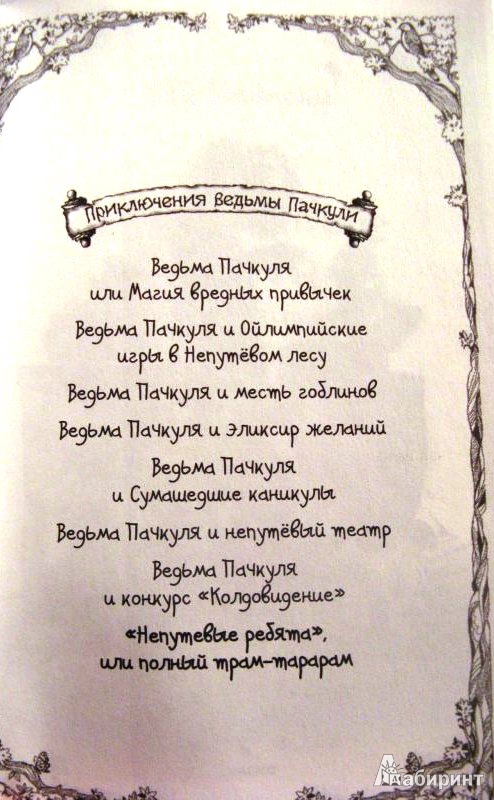 Приключения Ведьмы Пачкули
Ведьма Пачкуля
или Магия вредных привычек
Ведьма Пачкуля и Ойлимпийские
игры в Непутёвом лесу
Ведьма Пачкуля и месть гоблинов
Ведьма Пачкуля и эликсир желаний
Ведьма Пачкуля
и Сумашедшие каникулы
Ведьма Пачкуля и непутёвый театр
Ведьма Пачкуля
и конкурс «Колдовидение»
«Непутевые ребята»,
или полный трам-тарарам
Лабиринт